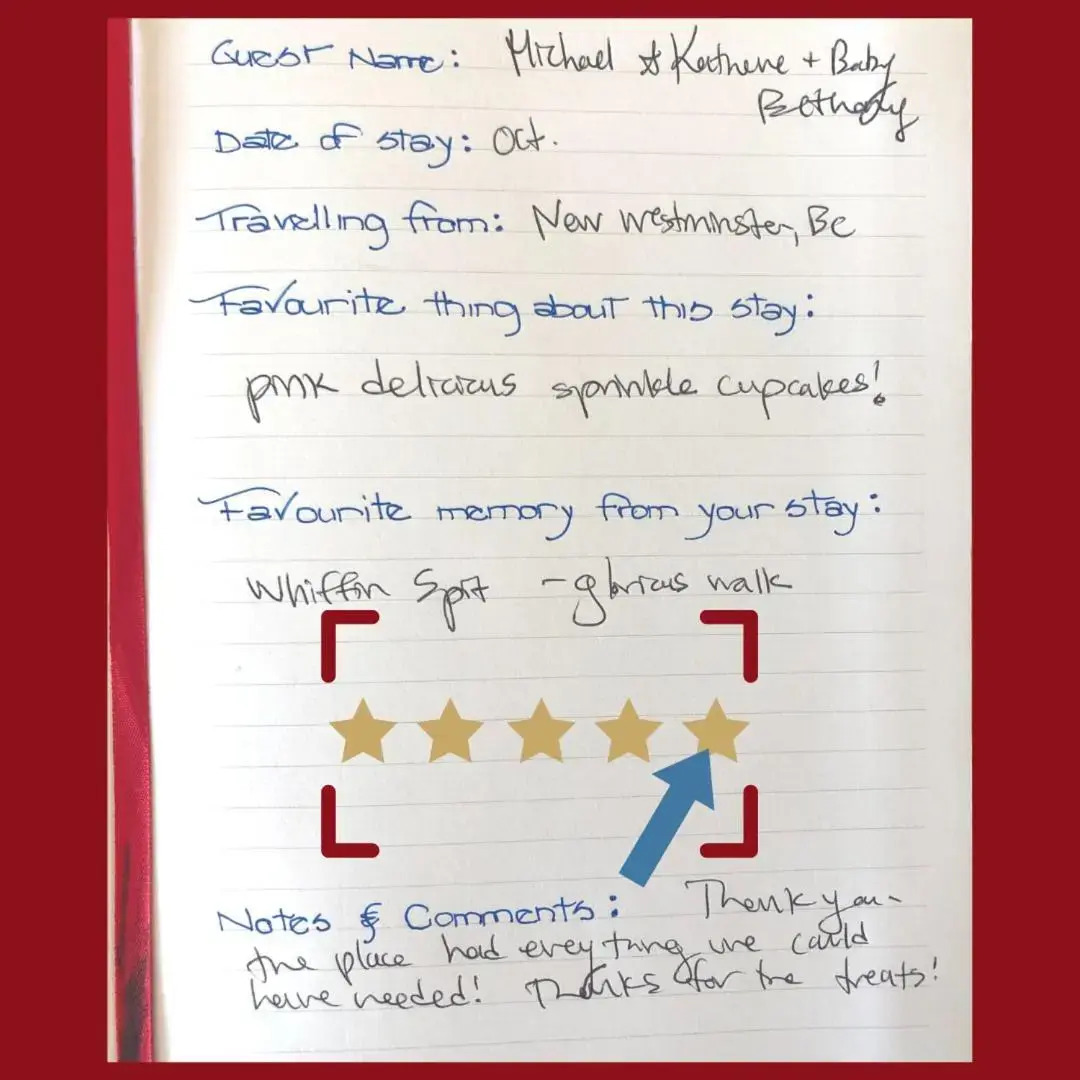 Guest Name: Michael & Katherine + Baby
Bethany
Date of stay: Oct.
Travelling from: New Westminster, BC
Favourite thing about this stay:
pink delicious sprinkle cupcakes!
Favourite memory from your stay:
Whiffin Spit - glorious walk
Notes & Comments: Thank you -
the place had everything we could
have needed! Thanks for the treats!